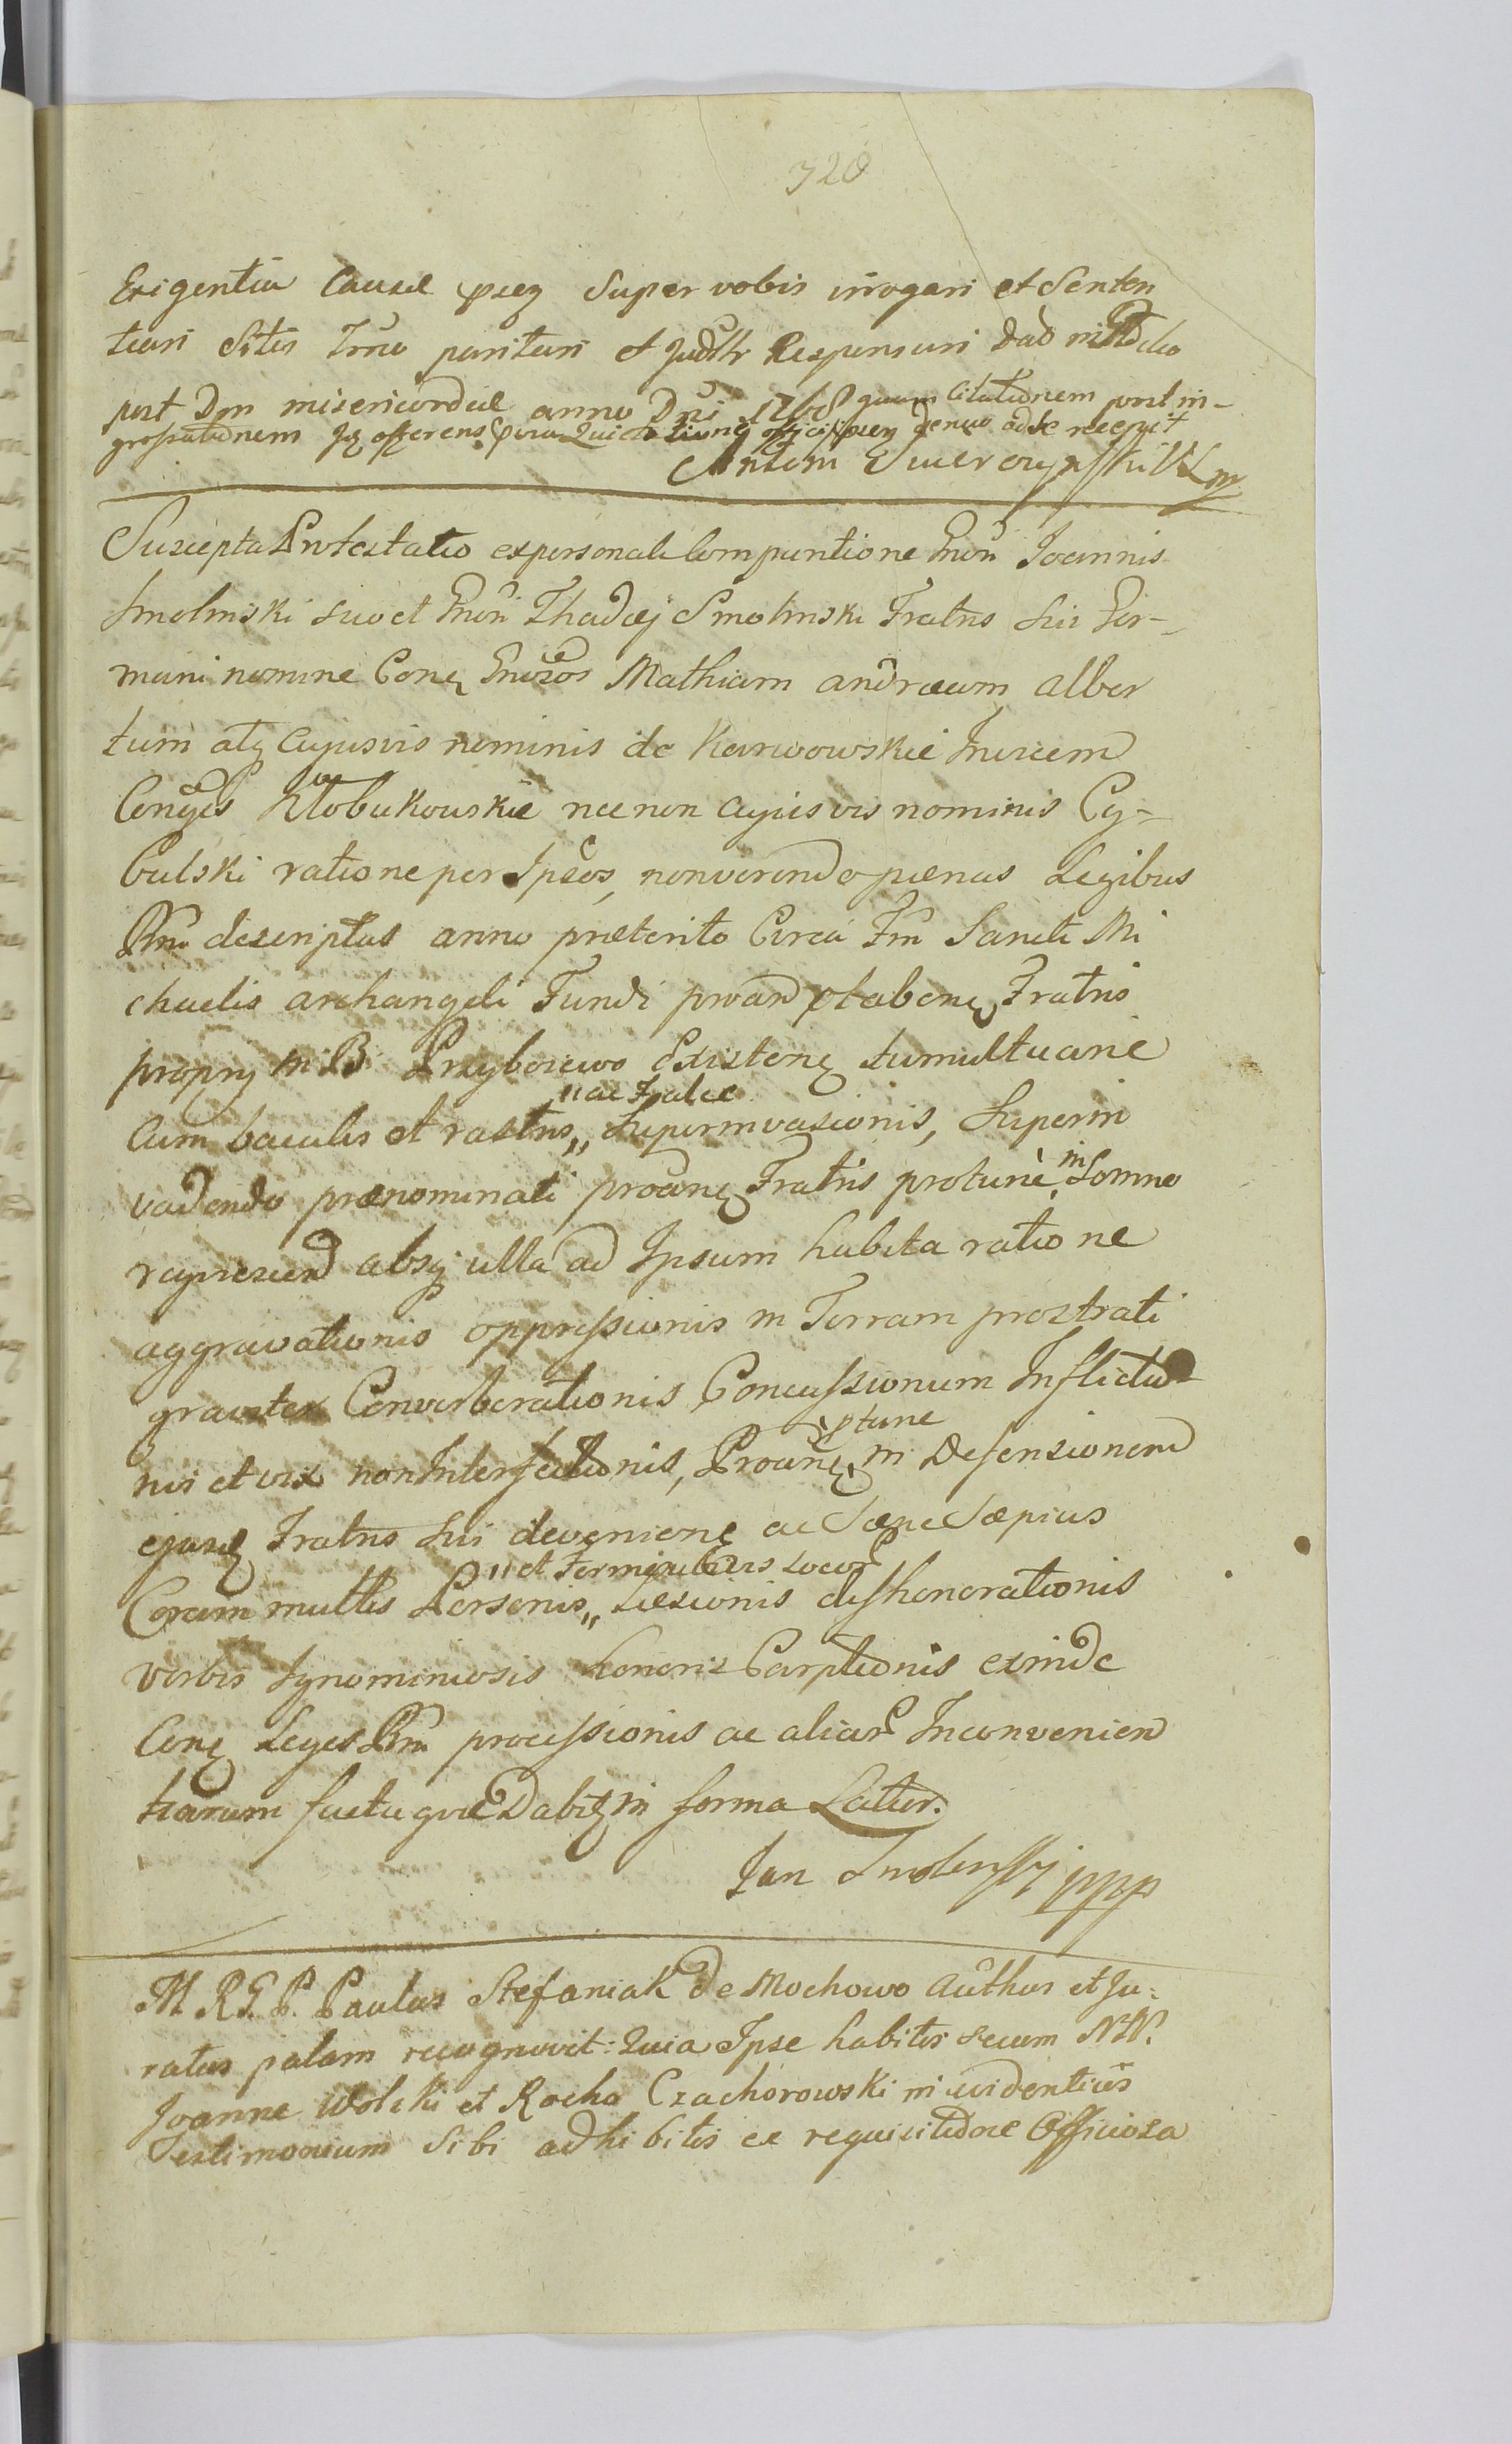 320
Exigentia Causae pszą Super vobis irrogari et Senten
tiari Sitis Trno parituri et Judltr Responsuri Dad
post Dm misericordiae anno Dni 1768 quam Citationem post in-
grossationem Jq offerens denuo ad se recepit
Antoni
Suscepta Protestatio ex personali Comparitione Gnsi Joannis
Smolinski suo et Gnsi Thadaej Smolinski Fratris Sui Ger-
mani nomine Conq Gnosos Mathiam andraeam alber
tum atq cujusvis nominis de Karwowskie Invicem
Conqes Kłobukowskie nec non cujusvis nominis Cy-
bulski ratione per Ipsos, non verendo paenas Legibus
Rni descriptas anno praeterito Circa Fm Sancti Mi
chaelis archangeli Fundi proan Fratris
proprij in B. Przyborowo Existenq tumultuarie
Cum baculis et rastris,, ,,ac Falce Superinvasionis, Superin
vadendo praenominati proanq Fratris protunc in Somno
requiescend absq ulla ad Ipsum habita ratione
aggravationis oppressionis in Terram prostrati
graviter Converberationis Concussionum Inflictio-
nis et vix non Interfectionis, Proanq ptunc in Defensionem
ejusd Fratris Sui devenienq ac Saepe Saepius
Coram multis Personis,, ,,et Locor Laesionis dishonorationis
verbis Ignominiosis honoris Carptionis exinde
Conq Leges Rni processionis ac aliar Inconvenien
tiarum facta quae Dabit in forma Latior.
Jan Smolinsky mpp
M. R. G. P. Paulus Stefaniak de Mochowo Authus et Ju-
ratus palam recognovit: Quia Ipse habitis secum NN.
Joanne Wolski et Rocho Czachorowski in evidentius
Testimonium Sibi adhibitis ex requisitione Officiosa